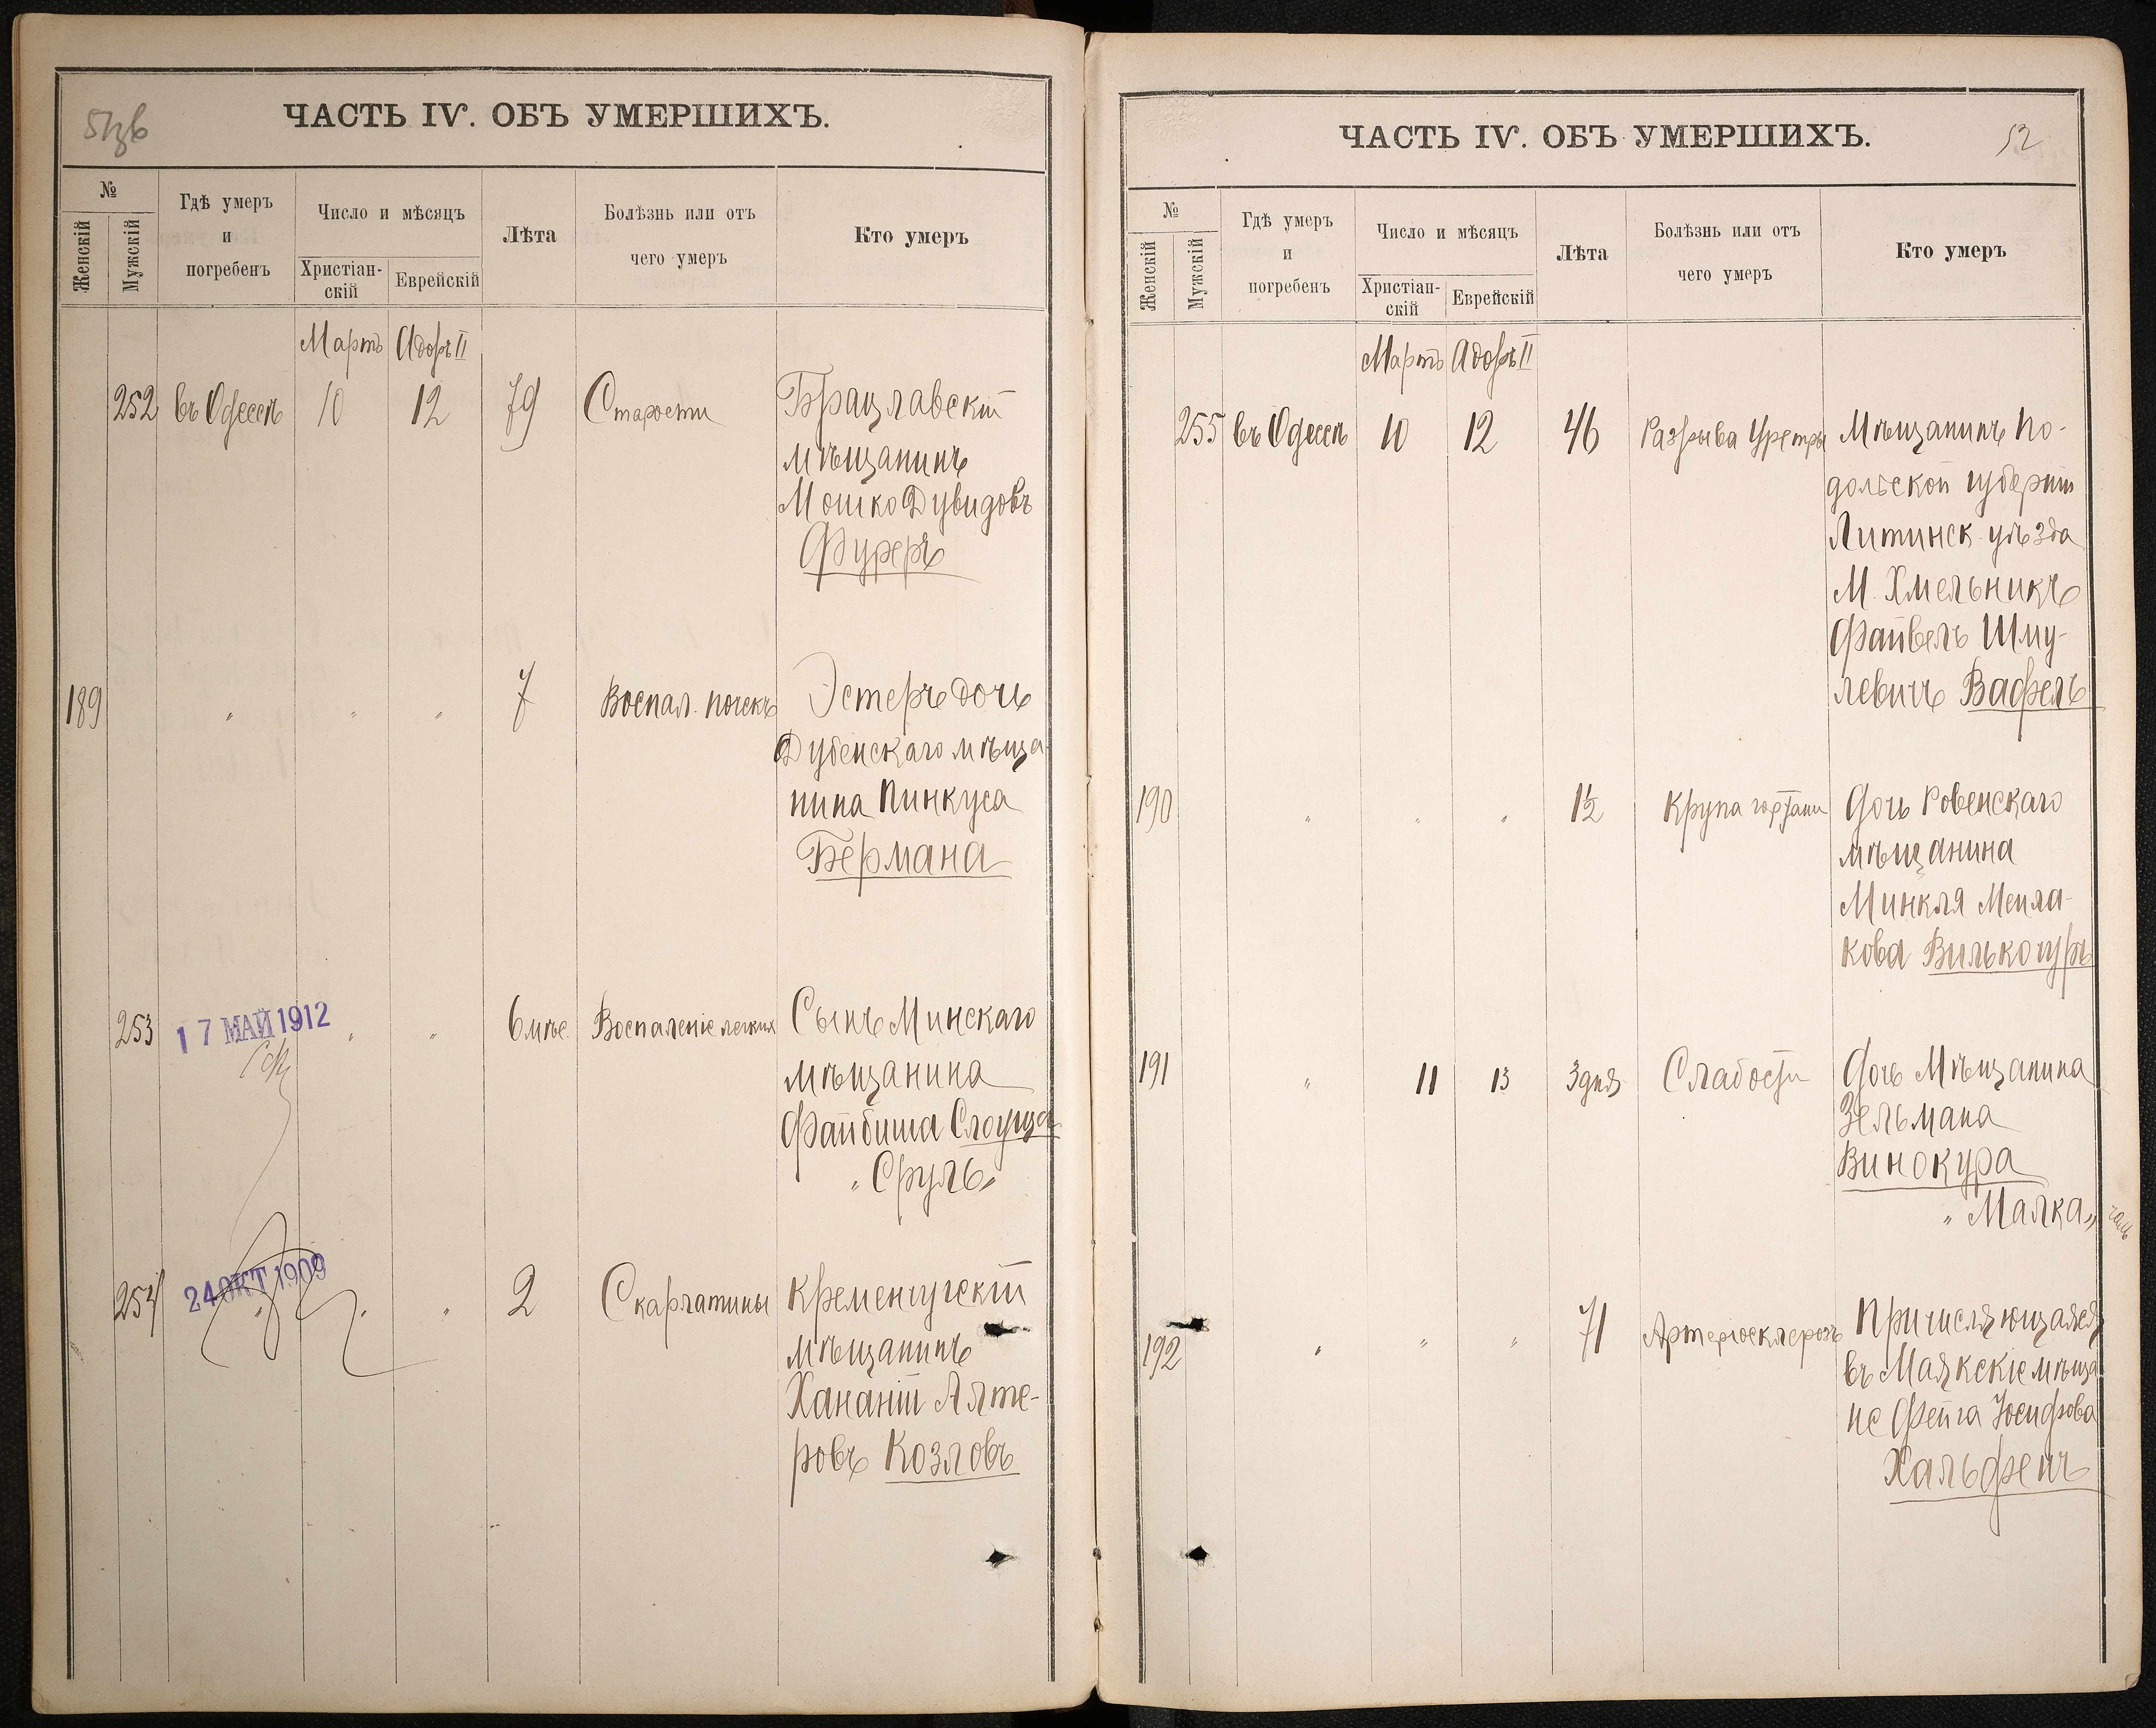 ЧАСТЬ IV. ОБЪ УМЕРШИХЪ.
№
Женскій
Мужскій
Гдѣ умеръ
и
погребенъ
Число и мѣсяцъ
Христіан-
скій
Еврейскій
Лѣта
Болѣзнь или отъ
чего умеръ
Кто умеръ
Мартъ Адоръ II
252 въ Одессѣ 10 12 79 Старости Брацлавскій
мѣщанинъ
Мошко Дувидовъ
Фуреръ
189 " " " 7 Воспал. почекъ Эстеръ дочь
Дубенскаго мѣща-
нина Пинкуса
Бермана
253 17 МАЙ 1912 " " 6 мѣс. Воспаленіе легкихъ Сынъ Минскаго
мѣщанина
Файбиша Слоуща
"Сруль"
254 24 ОКТ 1909 " " " 2 Скарлатины Кременчугскій
мѣщанинъ
Хананій Алте-
ровъ Козловъ
ЧАСТЬ IV. ОБЪ УМЕРШИХЪ.
52
№
Женскій
Мужскій
Гдѣ умеръ
и
погребенъ
Число и мѣсяцъ
Христіан-
скій
Еврейскій
Лѣта
Болѣзнь или отъ
чего умеръ
Кто умеръ
Мартъ Адоръ II
255 въ Одессѣ 10 12 46 Разрыва Уретры Мѣщанинъ По-
дольской губерніи
Литинск. уѣзда
М. Хмельникъ
Файвель Шму-
левичъ Вафель
190 " " " 1½ Крупа гортани Дочь Ровенскаго
мѣщанина
Минкля Меила-
кова Вилькогуръ
191 " 11 13 3 дня Слабости Дочь Мѣщанина
Зельмана
Винокура
"Малка"
192 " " " 71 Артеріосклерозъ Причисляющаяся
въ Маякскіе мѣща-
не Фейга Іосифова
Хальфенъ